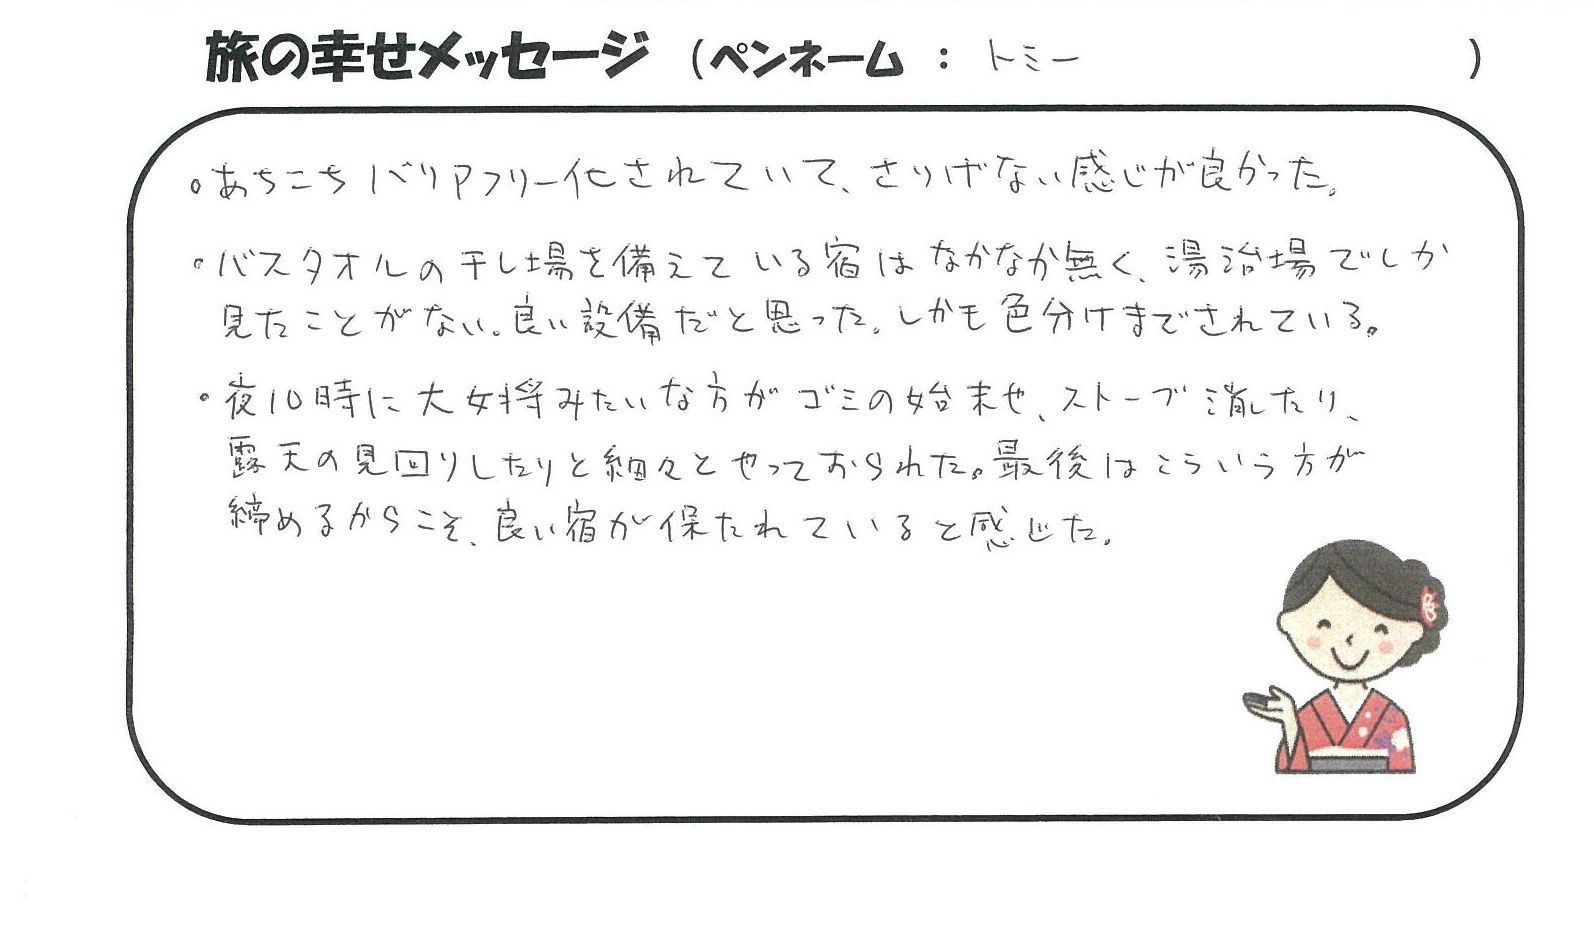 旅の幸せメッセージ (ペンネーム : トミー )
。あちこちバリアフリー化されていて、さりげない感じが良かった。
・バスタオルの干し場を備えている宿はなかなか無く、湯治場でしか
見たことがない。良い設備だと思った。しかも色分けまでされている。
・夜10時に大女将みたいな方がゴミの始末や、ストーブ消したり、
露天の見回りしたりと細々とやっておられた。最後はこういう方が
締めるからこそ、良い宿が保たれていると感じた。